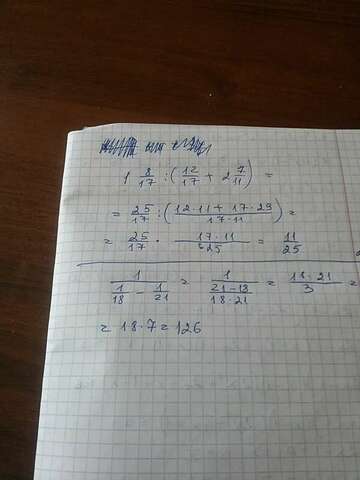 1 8/17 : (12/17 + 2 7/11) =
= 25/17 : (12·11 + 17·29 / 17·11) =
= 25/17 · 17·11/625 = 11/25
1/(1/18 - 1/21) = 1/(21-18/18·21) = 18·21/3 =
= 18·7 = 126